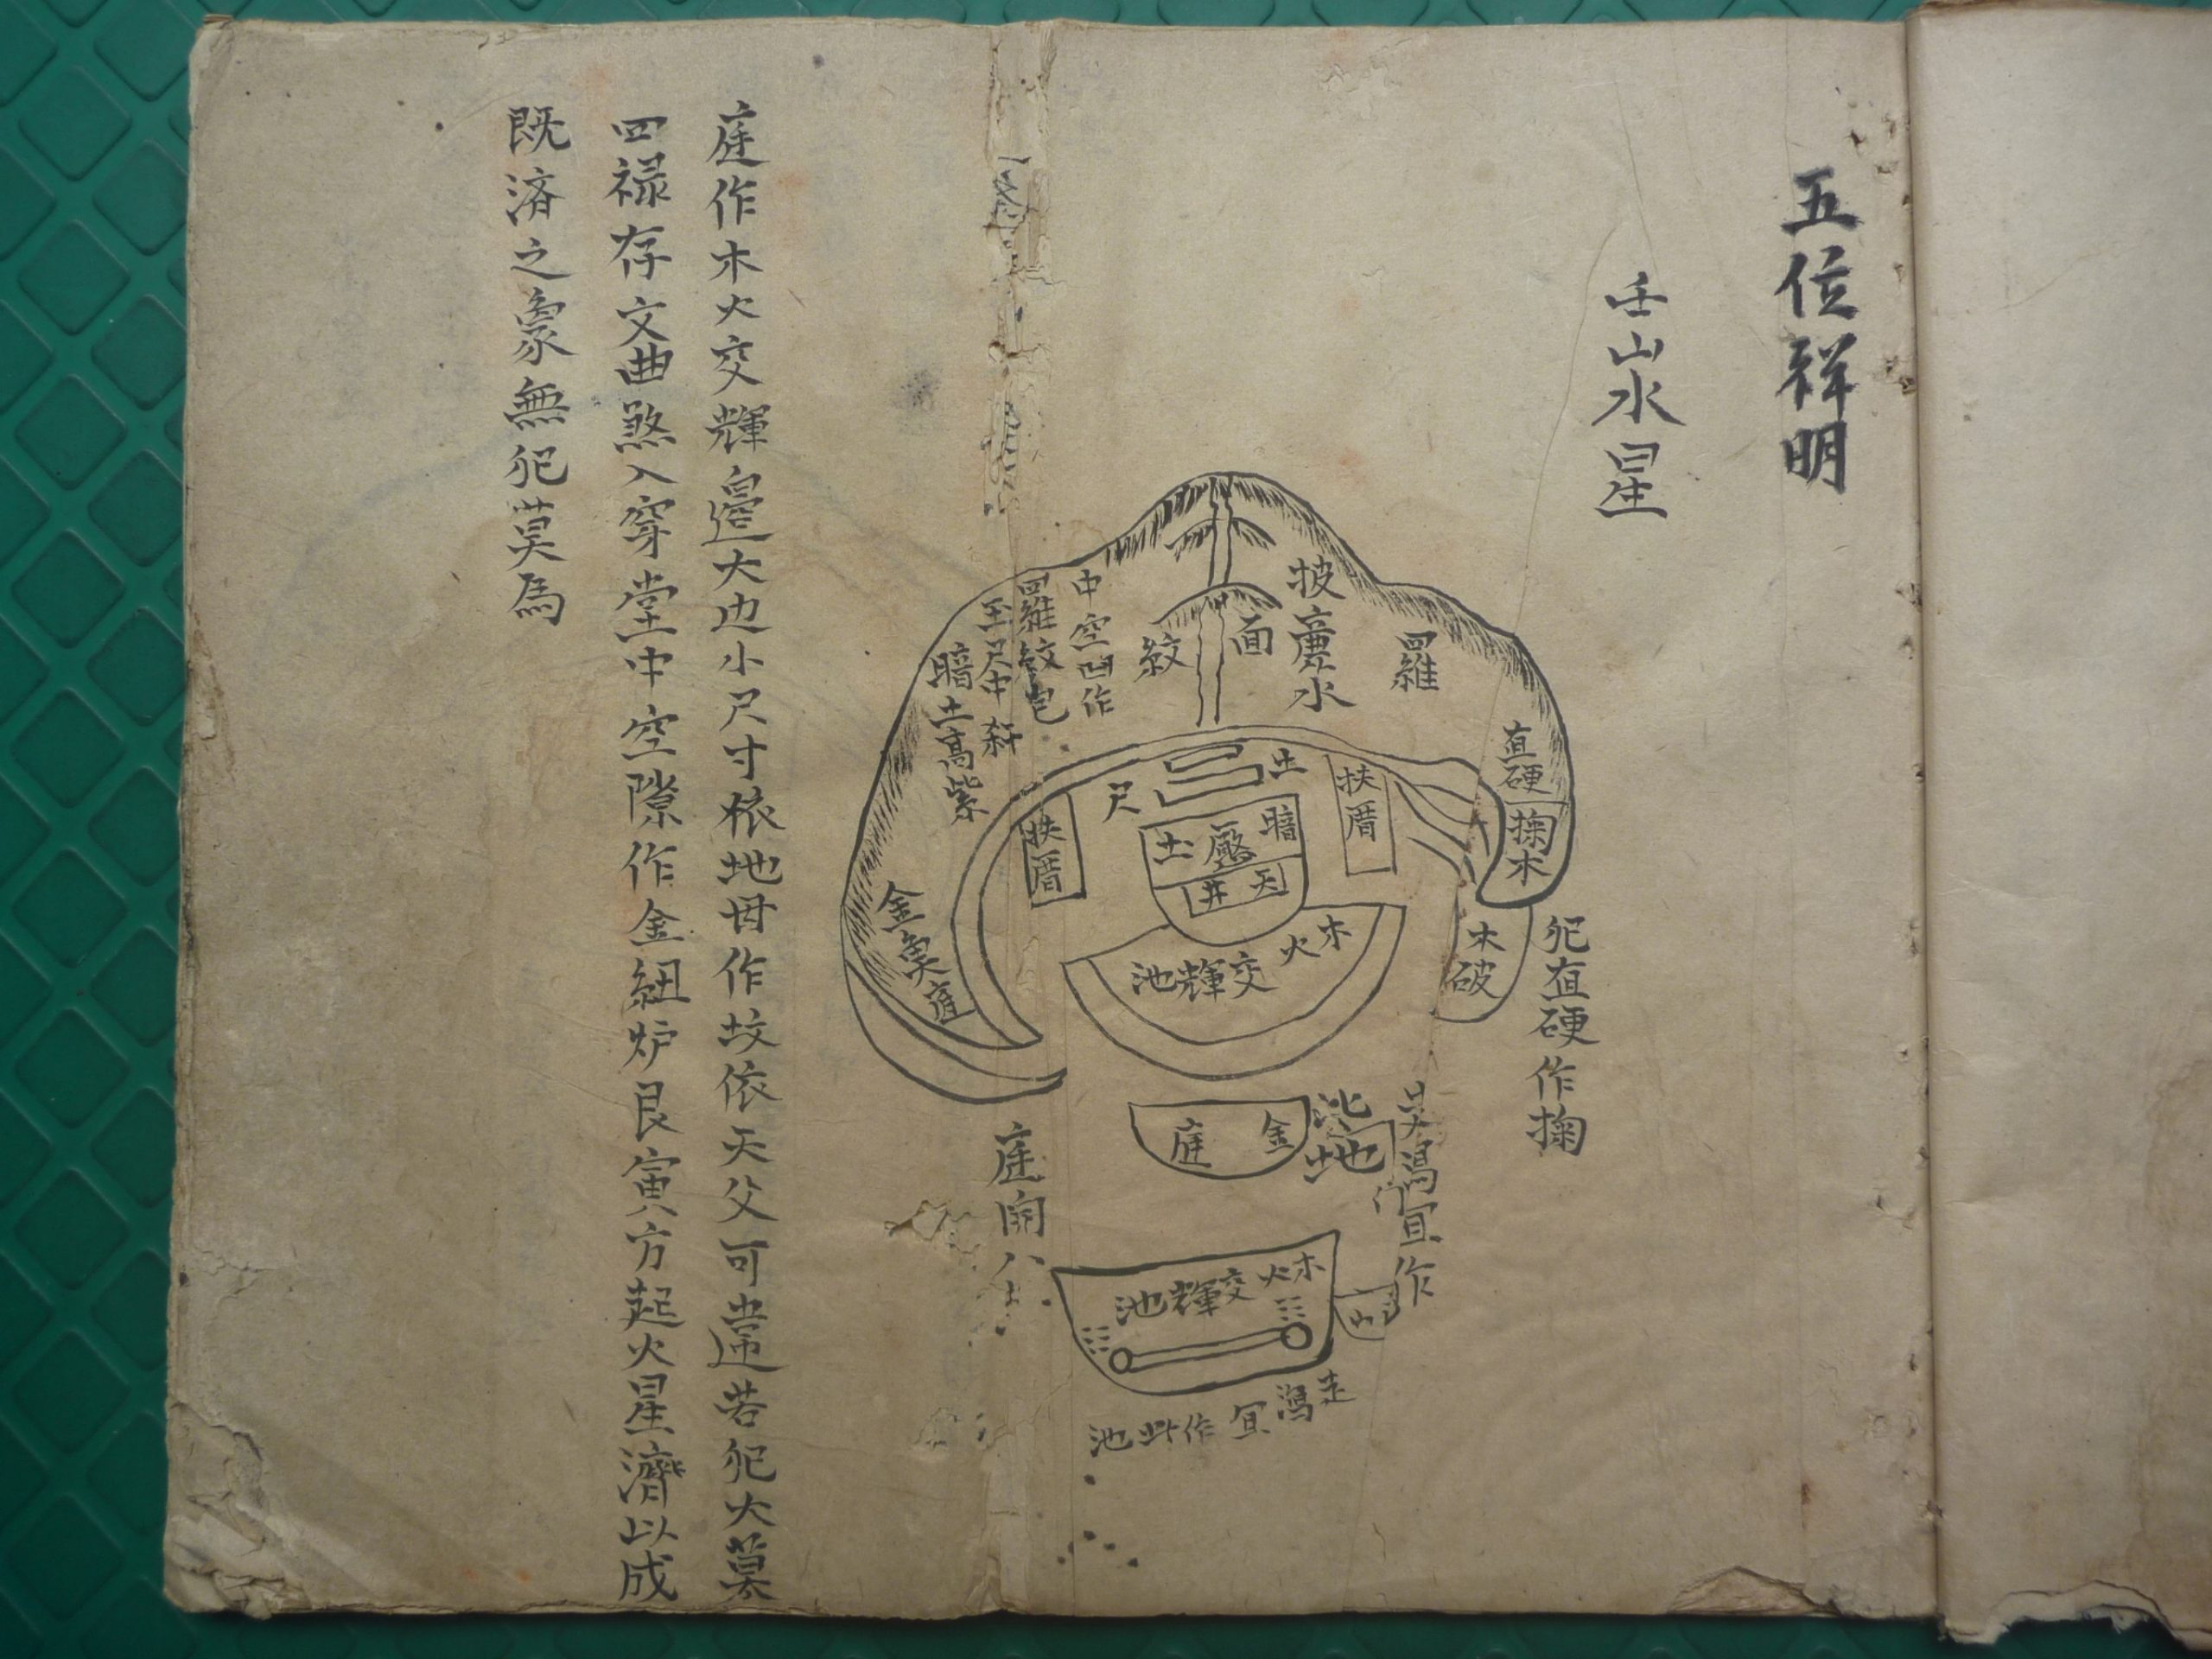 五位祥明
壬山水星
犯直硬作掬
直硬
掬木
木破
羅
披麻水
面
紋
中空凹作
羅紋包
至尺中
暗土高紫
土
尺
扶厝
扶厝
暗
土
天井
木火
交輝池
金
庭
池
地
宜作
木火交輝池
走瀉宜作此池
庭開八
庭作木火交輝邉大边小尺寸依地母作坟依天父可違若犯大墓
四禄存文曲煞入穿堂中空隙作金紐炉艮寅方起火星濟以成
既済之象無犯莫為